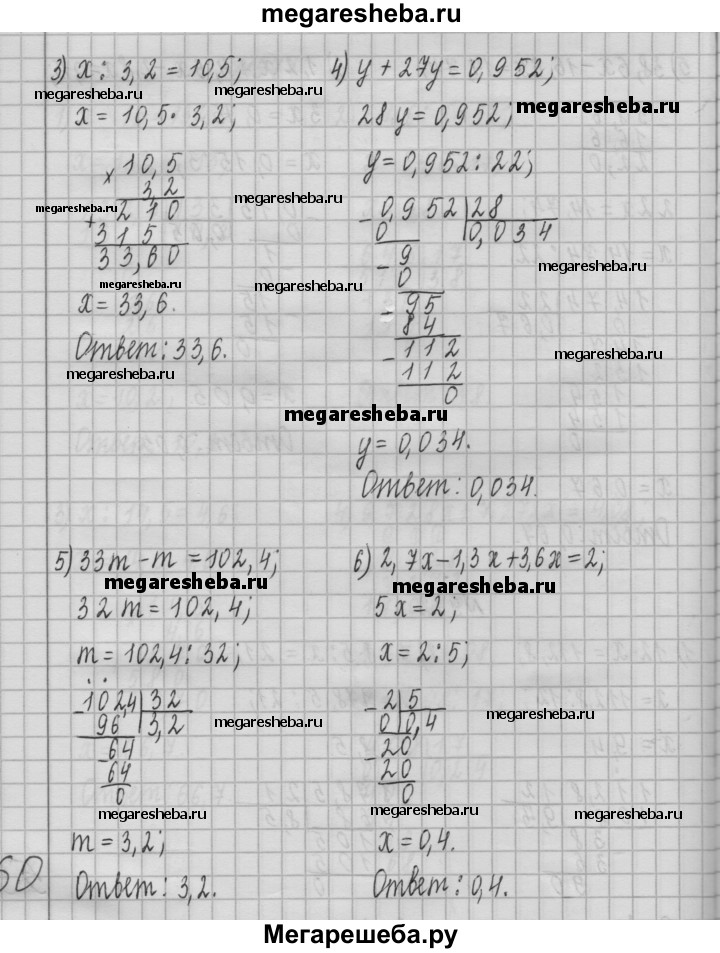 megaresheba.ru
3) x : 3,2 = 10,5;
megaresheba.ru
x = 10,5 · 3,2;
× 10,5
3,2
megaresheba.ru
+ 210
315
33,60
megaresheba.ru
x = 33,6.
Ответ: 33,6.
megaresheba.ru
4) y + 27y = 0,952;
megaresheba.ru
28y = 0,952;
megaresheba.ru
y = 0,952 : 22;
megaresheba.ru
- 0,952 | 28
0 | 0,034
- 9
0
megaresheba.ru
- 95
84
- 112
megaresheba.ru
112
0
megaresheba.ru
y = 0,034.
Ответ: 0,034.
5) 33m - m = 102,4;
megaresheba.ru
32m = 102,4;
m = 102,4 : 32;
- 102,4 | 32
96 | 3,2
megaresheba.ru
- 64
64
0
megaresheba.ru
m = 3,2;
Ответ: 3,2.
6) 2,7x - 1,3x + 3,6x = 2;
megaresheba.ru
5x = 2;
x = 2 : 5;
- 2 | 5
0 | 0,4
megaresheba.ru
- 20
20
0
megaresheba.ru
x = 0,4.
Ответ: 0,4.
60
Мегарешеба.ру